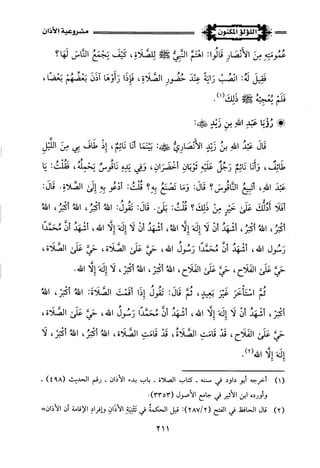 اللؤلؤ المكنون
مشروعية الأذان
عُمُومَتِهِ مِنَ الأَنْصَارِ قَالُوا: اهْتَمَّ النَّبِيُّ ﷺ لِلصَّلَاةِ، كَيْفَ يَجْمَعُ النَّاسَ لَهَا؟
فَقِيلَ لَهُ: انْصُبْ رَايَةً عِنْدَ حُضُورِ الصَّلَاةِ، فَإِذَا رَأَوْهَا آذَنَ بَعْضُهُمْ بَعْضًا،
فَلَمْ يُعْجِبْهُ ﷺ ذَلِكَ(١).
رُؤْيَا عَبْدِ اللهِ بنِ زَيْدٍ ﷺ:
قَالَ عَبْدُ اللهِ بنُ زَيْدٍ الأَنْصَارِيُّ: بَيْنَمَا أَنَا نَائِمٌ، إِذْ طَافَ بِي مِنَ اللَّيْلِ
طَائِفٌ، وَأَنَا نَائِمٌ رَجُلٌ عَلَيْهِ ثَوْبَانِ أَخْضَرَانِ، وَفِي يَدِهِ نَاقُوسٌ يَحْمِلُهُ، فَقُلْتُ: يَا
عَبْدَ اللهِ، أَتَبِيعُ النَّاقُوسَ؟ قَالَ: وَمَا تَصْنَعُ بِهِ؟ قُلْتُ: أَدْعُو بِهِ إِلَى الصَّلَاةِ. قَالَ:
أَفَلَا أَدُلُّكَ عَلَى خَيْرٍ مِنْ ذَلِكَ؟ قُلْتُ: بَلَى. قَالَ: تَقُولُ: اللهُ أَكْبَرُ، اللهُ أَكْبَرُ، اللهُ
أَكْبَرُ، اللهُ أَكْبَرُ، أَشْهَدُ أَنْ لَا إِلَهَ إِلَّا اللهُ، أَشْهَدُ أَنْ لَا إِلَهَ إِلَّا اللهُ، أَشْهَدُ أَنَّ مُحَمَّدًا
رَسُولُ اللهِ، أَشْهَدُ أَنَّ مُحَمَّدًا رَسُولُ اللهِ، حَيَّ عَلَى الصَّلَاةِ، حَيَّ عَلَى الصَّلَاةِ،
حَيَّ عَلَى الفَلَاحِ، حَيَّ عَلَى الفَلَاحِ، اللهُ أَكْبَرُ، اللهُ أَكْبَرُ، لَا إِلَهَ إِلَّا اللهُ.
ثُمَّ اسْتَأْخَرَ غَيْرَ بَعِيدٍ، ثُمَّ قَالَ: تَقُولُ إِذَا أَقَمْتَ الصَّلَاةَ: اللهُ أَكْبَرُ، اللهُ
أَكْبَرُ، أَشْهَدُ أَنْ لَا إِلَهَ إِلَّا اللهُ، أَشْهَدُ أَنَّ مُحَمَّدًا رَسُولُ اللهِ، حَيَّ عَلَى الصَّلَاةِ،
حَيَّ عَلَى الفَلَاحِ، قَدْ قَامَتِ الصَّلَاةُ، قَدْ قَامَتِ الصَّلَاةُ، اللهُ أَكْبَرُ، اللهُ أَكْبَرُ، لَا
إِلَهَ إِلَّا اللهُ(٢).
(١) أخرجه أبو داود في سننه - كتاب الصلاة - باب بدء الأذان - رقم الحديث (٤٩٨) -
وأورده ابن الأثير في جامع الأصول (٣٣٥٣).
(٢) قال الحافظ في الفتح (٢٨٧/٢): قيل الحكمةُ في تَثْنِيَةِ الأذانِ وإفرادِ الإقامة أن الأذان=
٢١١